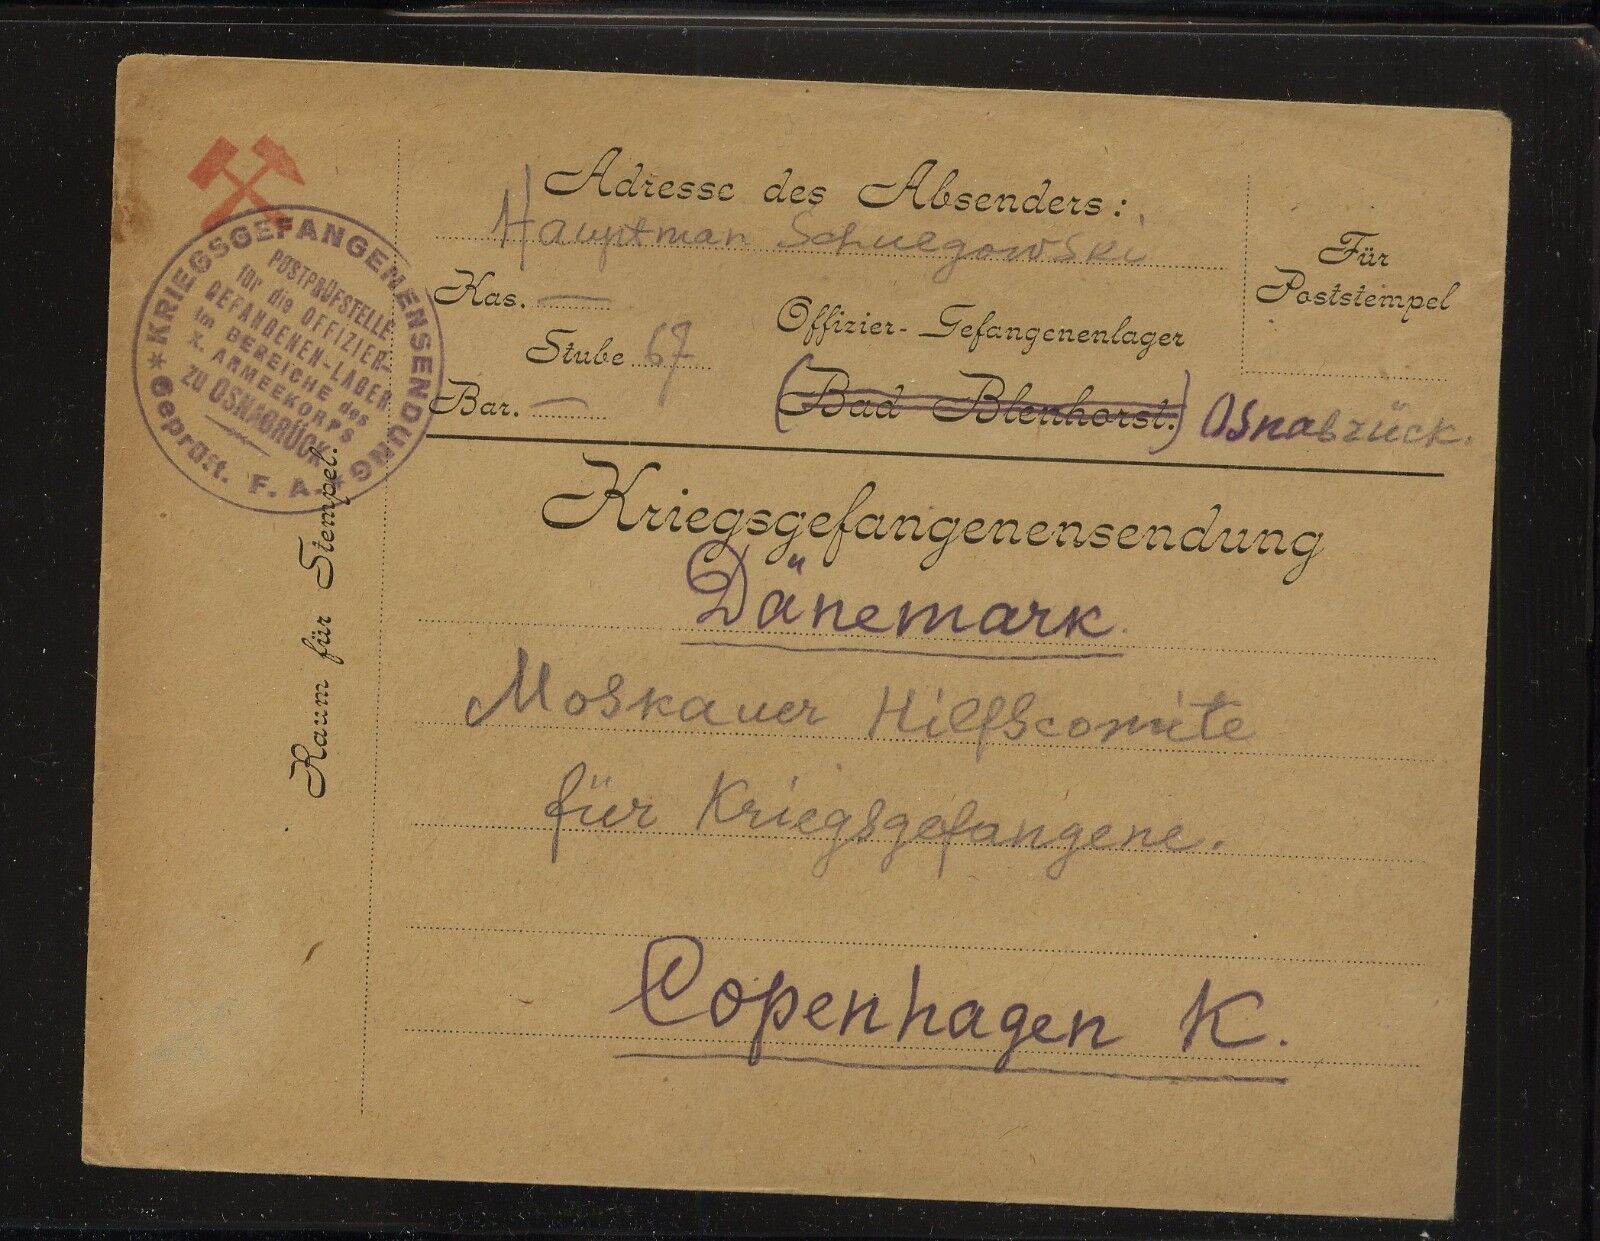 Adresse des Absenders:
Hauptman Schulgowski
Kas.
Stube 67
Bar.
Offizier-Gefangenenlager
(Bad Blenhorst.) Osnabrück.
Für
Poststempel
KRIEGSGEFANGENENSENDUNG
POSTPRÜFSTELLE
für die OFFIZIER-
GEFANGENEN-LAGER
im BEREICHE des
X. ARMEEKORPS
ZU OSNABRÜCK
Geprüft. F. A.
Raum für Stempel.
Kriegsgefangenensendung
Dänemark.
Moskauer Hilfscomite
für Kriegsgefangene.
Copenhagen K.